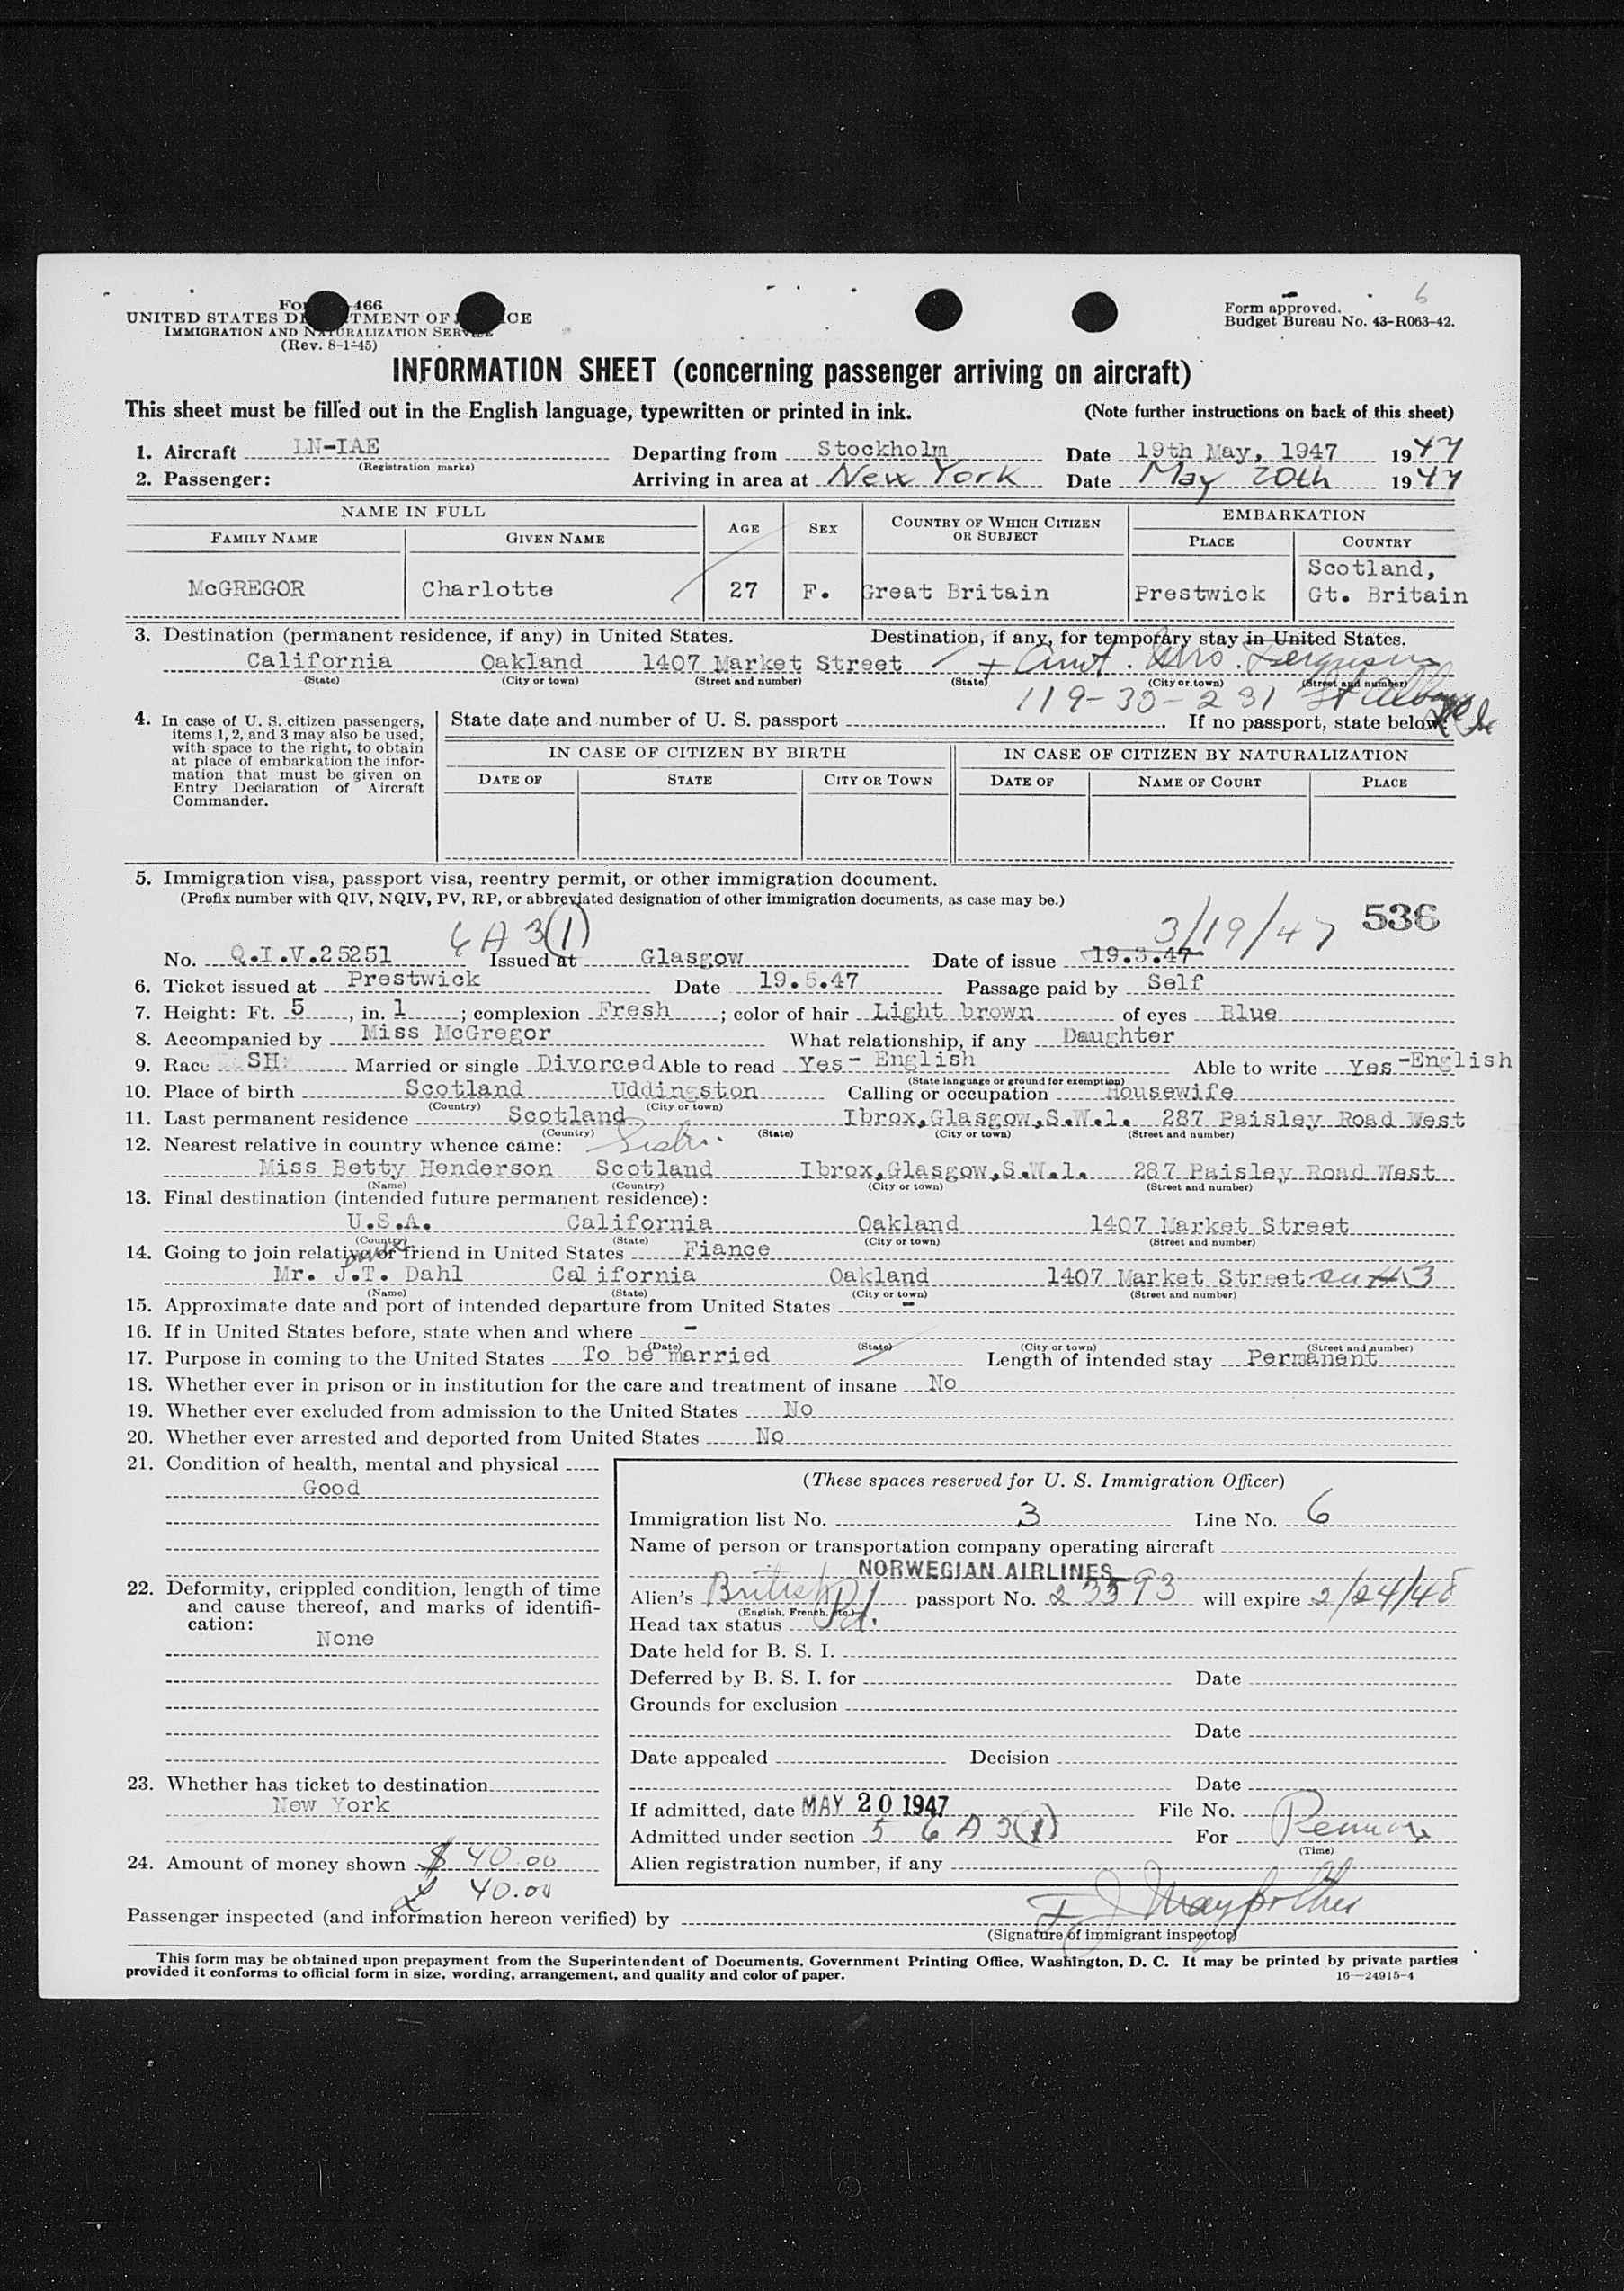 6
Form approved.
Budget Bureau No. 43-R063-42.
466
UNITED STATES
IMMIGRATION AND NATURALIZATION SERVICE
(Rev. 8-1-45)
INFORMATION SHEET (concerning passenger arriving on aircraft)
This sheet must be filled out in the English language, typewritten or printed in ink. (Note further instructions on back of this sheet)
1. Aircraft LN-IAE Departing from Stockholm Date 19th May, 1947 1947
(Registration marks)
2. Passenger: Arriving in area at New York Date May 20th 1947
NAME IN FULL AGE SEX COUNTRY OF WHICH CITIZEN OR SUBJECT EMBARKATION
FAMILY NAME GIVEN NAME PLACE COUNTRY
McGREGOR Charlotte 27 F. Great Britain Prestwick Scotland, Gt. Britain
3. Destination (permanent residence, if any) in United States. Destination, if any, for temporary stay in United States.
California Oakland 1407 Market Street Aunt. Mrs. Ferguson
(State) (City or town) (Street and number) (State) (City or town) (Street and number)
119-30-231 St Albans
4. In case of U. S. citizen passengers, items 1, 2, and 3 may also be used, with space to the right, to obtain at place of embarkation the information that must be given on Entry Declaration of Aircraft Commander.
State date and number of U. S. passport . If no passport, state below:
IN CASE OF CITIZEN BY BIRTH IN CASE OF CITIZEN BY NATURALIZATION
DATE OF STATE CITY OR TOWN DATE OF NAME OF COURT PLACE
5. Immigration visa, passport visa, reentry permit, or other immigration document.
(Prefix number with QIV, NQIV, PV, RP, or abbreviated designation of other immigration documents, as case may be.)
6 A 3(1) 3/19/47 536
No. Q.I.V.25251 Issued at Glasgow Date of issue 19.3.47
6. Ticket issued at Prestwick Date 19.5.47 Passage paid by Self
7. Height: Ft. 5, in. 1; complexion Fresh; color of hair Light brown of eyes Blue
8. Accompanied by Miss McGregor What relationship, if any Daughter
9. Race SH Married or single Divorced Able to read Yes - English Able to write Yes -English
(State language or ground for exemption)
10. Place of birth Scotland Uddingston Calling or occupation Housewife
(Country) (City or town)
11. Last permanent residence Scotland Ibrox,Glasgow,S.W.1. 287 Paisley Road West
(Country) (State) (City or town) (Street and number)
12. Nearest relative in country whence came: Sister.
Miss Betty Henderson Scotland Ibrox,Glasgow,S.W.1. 287 Paisley Road West
(Name) (Country) (City or town) (Street and number)
13. Final destination (intended future permanent residence):
U.S.A. California Oakland 1407 Market Street
(Country) (State) (City or town) (Street and number)
14. Going to join relative or friend in United States Fiance
Mr. J.T. Dahl California Oakland 1407 Market Street
(Name) (State) (City or town) (Street and number)
15. Approximate date and port of intended departure from United States -
16. If in United States before, state when and where -
(Date) (State) (City or town) (Street and number)
17. Purpose in coming to the United States To be married Length of intended stay Permanent
18. Whether ever in prison or in institution for the care and treatment of insane No
19. Whether ever excluded from admission to the United States No
20. Whether ever arrested and deported from United States No
21. Condition of health, mental and physical
Good
22. Deformity, crippled condition, length of time and cause thereof, and marks of identification:
None
23. Whether has ticket to destination
New York
24. Amount of money shown $ 40.00
£ 40.00
(These spaces reserved for U. S. Immigration Officer)
Immigration list No. 3 Line No. 6
Name of person or transportation company operating aircraft
NORWEGIAN AIRLINES
Alien's British passport No. 23593 will expire 2/24/48
(English, French, etc.)
Head tax status Pd.
Date held for B. S. I.
Deferred by B. S. I. for Date
Grounds for exclusion
Date
Date appealed Decision
Date
If admitted, date MAY 20 1947 File No.
Admitted under section 5 6 A 3(1) For
(Time)
Alien registration number, if any
Passenger inspected (and information hereon verified) by
(Signature of immigrant inspector)
This form may be obtained upon prepayment from the Superintendent of Documents, Government Printing Office, Washington, D. C. It may be printed by private parties
provided it conforms to official form in size, wording, arrangement, and quality and color of paper. 16—24915-4